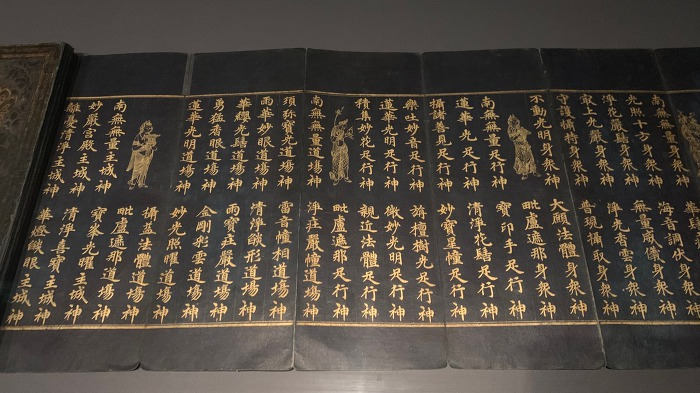 南無無量身衆神 海音調伏身衆神
光照十方身衆神 無量威儀身衆神
淨光香雲身衆神
最上光嚴身衆神 普現攝取身衆神
守護攝持身衆神 大願法體身衆神
不動光明身衆神 毗盧遮那身衆神
寶印手足行神
南無無量足行神 清淨花髻足行神
蓮華光足行神 妙寶星幢足行神
攝諸善見足行神 旃檀樹光足行神
樂吐妙音足行神 微妙光明足行神
積集妙花足行神 親近法體足行神
毗盧遮那足行神
南無無量道場神 淨莊嚴幢道場神
須弥寶光道場神 雷音幢相道場神
雨華妙眼道場神 清淨焰形道場神
華纓光髻道場神 雨寶莊嚴道場神
勇猛香眼道場神 金剛彩雲道場神
蓮華光明道場神 妙光照耀道場神
攝益法體道場神
南無無量主城神 毗盧遮那道場神
妙嚴宮殿主城神 寶峯光曜主城神
離憂清淨主城神 清淨喜寶主城神
華燈焰眼主城神